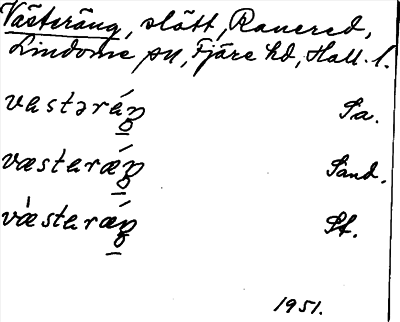 Västeräng, slått, Ranered,
Lindome sn, Fjäre hd, Hall. l.
vastəráŋ Sa.
væstəræ̀ŋ Sand.
væ̀stəræ̀ŋ St.
1951.